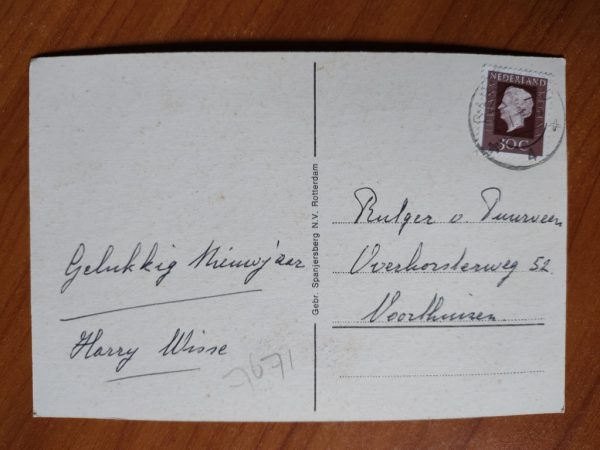 Gelukkig Nieuwjaar
Harry Wisse
7671
Gebr. Spanjersberg N.V. Rotterdam
NEDERLAND
JULIANA REGINA
30 C
Rutger v Tuurveen
Overhorsterweg 52
Voorthuizen